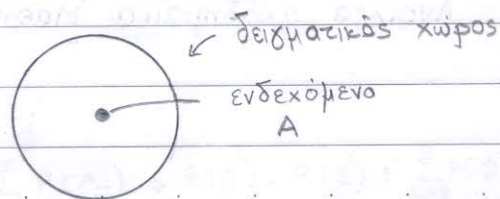 δειγματικός χώρος
ενδεχόμενο
A